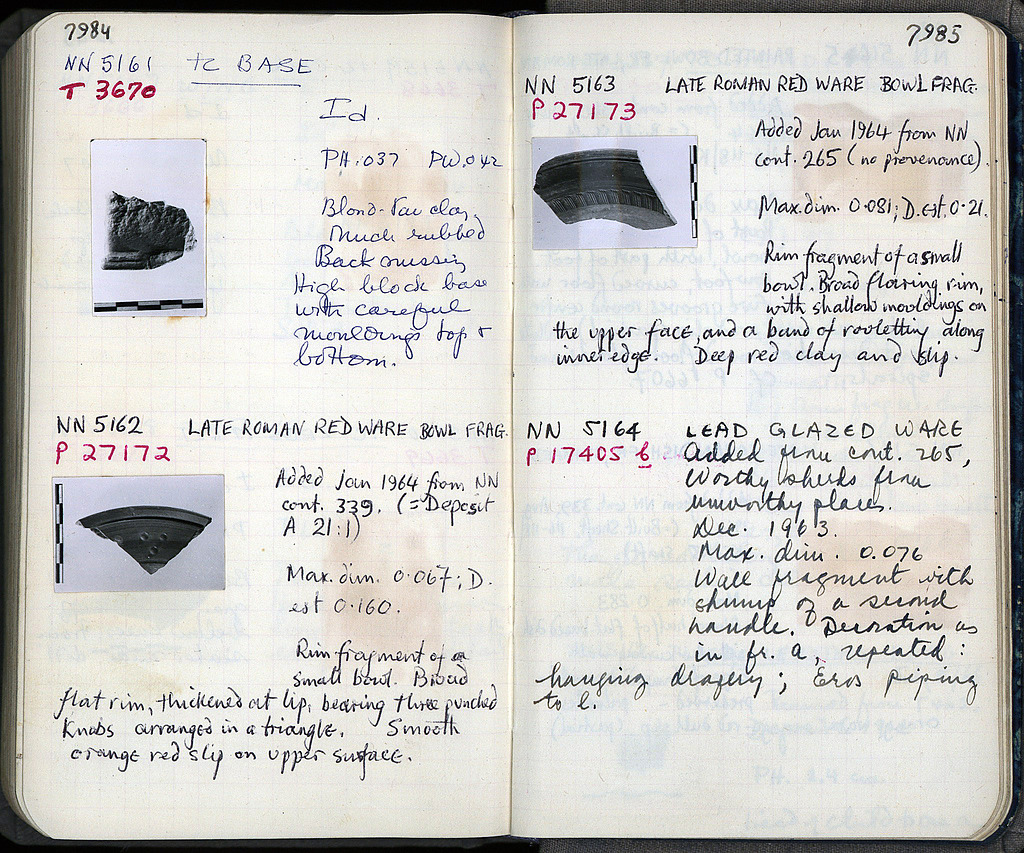 7984
NN 5161 tc BASE
T 3670
Id.
PH. 037 PW. 042
Blond-tan clay,
Much rubbed
Back missing
High block base
with careful
mouldings top +
bottom.
NN 5162 LATE ROMAN RED WARE BOWL FRAG.
P 27172
Added Jan 1964 from NN
cont. 339. (= Deposit
A 21:1)
Max. dim. 0.067; D.
est 0.160.
Rim fragment of a
small bowl. Broad
flat rim, thickened at lip, bearing three punched
Knobs arranged in a triangle. Smooth
orange red slip on upper surface.
7985
NN 5163 LATE ROMAN RED WARE BOWL FRAG.
P 27173
Added Jan 1964 from NN
cont. 265 (no provenance).
Max. dim. 0.081; D. est. 0.21.
Rim fragment of a small
bowl. Broad flaring rim,
with shallow mouldings on
the upper face, and a band of rouletting along
inner edge. Deep red clay and slip.
NN 5164 LEAD GLAZED WARE
P 17405 b.
Added from cont. 265,
Worthy sherds from
unworthy places.
Dec. 1963.
Max. dim. 0.076
Wall fragment with
stump of a second
handle. Decoration as
in fr. a, repeated:
hanging drapery; Eros piping
to l.